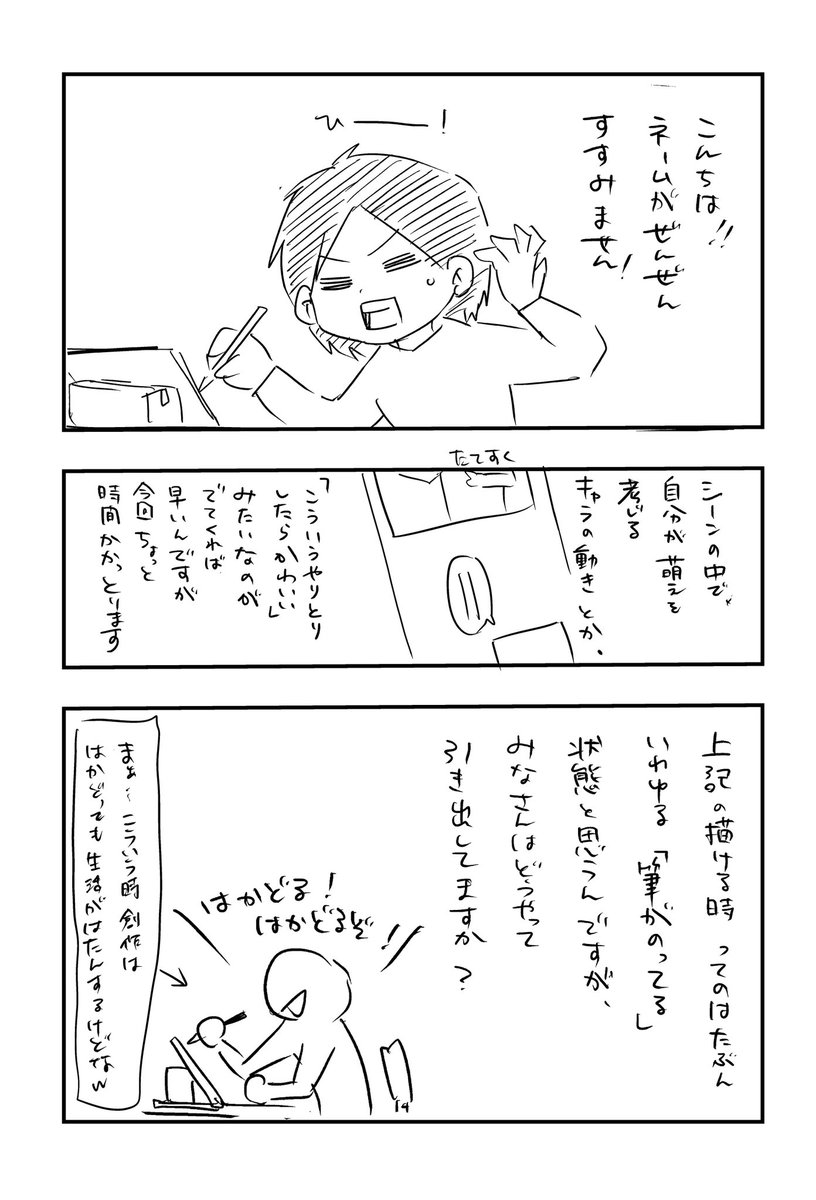 こんちは!!
ネームがぜんぜん
すすみません!
ひー!
シーンの中で
自分が萌えを
考じる
キャラの動きとか、
たてすく
「こういうやりとり
したらかわいい」
みたいなのが
でてくれば
早いんですが
今回ちょっと
時間かかっとります
上記の描ける時ってのはたぶん
いわゆる「筆がのってる」
状態と思うんですが、
みなさんはどうやって
引き出してますか?
はかどる!
はかどるぞ!!
まぁ…こういう時創作は
はかどっても生活がはたんするけどなw